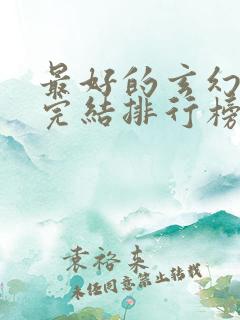 最好的玄幻
完結排行榜
袁裕来
未经同意禁止转载